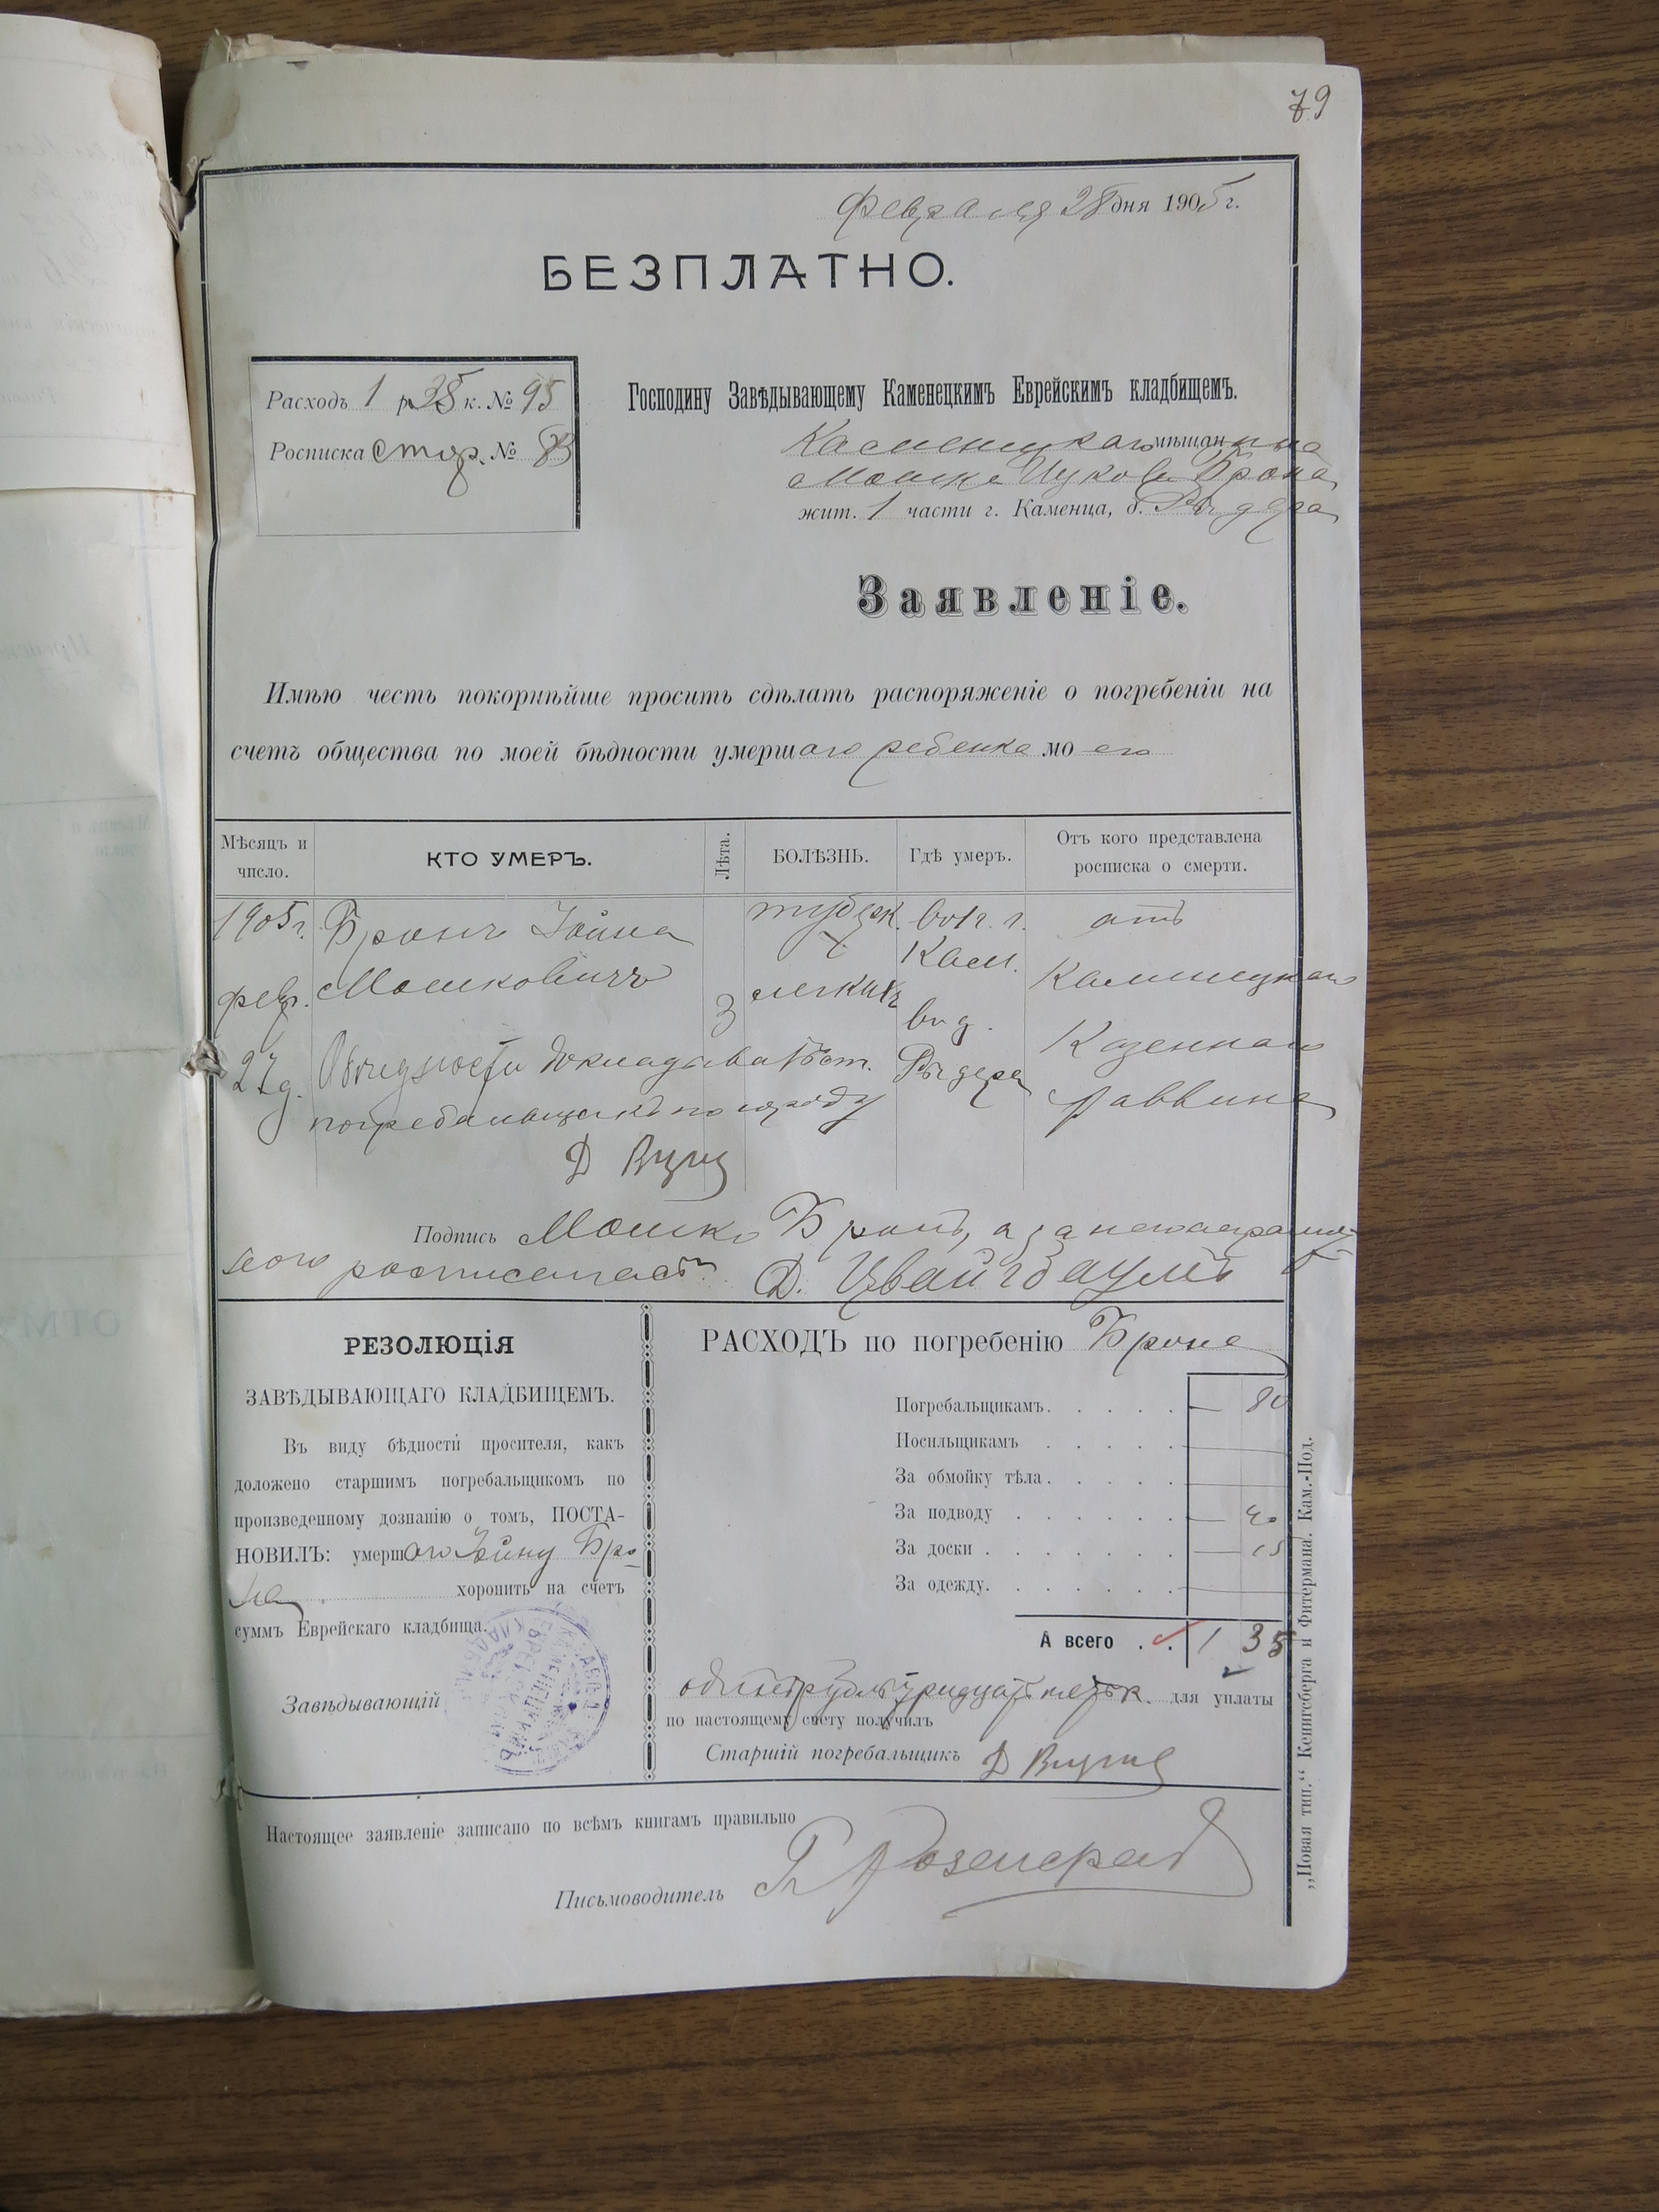 79
Февраля 28 дня 1905 г.
БЕЗПЛАТНО.
Расходъ 1 р. 35 к. № 95
Росписка стар. № 83
Господину Завѣдывающему Каменецкимъ Еврейскимъ кладбищемъ.
Каменецкаго мѣщанина
Мошка Ицкова Брона
жит. 1 части г. Каменца, д. Ридера
Заявленіе.
Имѣю честь покорнѣйше просить сдѣлать распоряженіе о погребеніи на
счетъ общества по моей бѣдности умершаго ребенка моего
Мѣсяцъ и число.
КТО УМЕРЪ.
Лѣта.
БОЛѢЗНЬ.
Гдѣ умер.
Отъ кого представлена росписка о смерти.
1905 г. Бронъ Іойна туберк. въ 1 ч. г. отъ
фев. Мошковичъ 3 легкихъ Кам. Каменецкаго
27 д. О бѣдности докладывалъ ст. въ д. Ридера Казеннаго
погребальщикъ по городу Раввина
Д
Подпись Мошко Бронъ, а за неграмот-
наго росписался Д. Цвайгбаумъ
РЕЗОЛЮЦІЯ
ЗАВѢДЫВАЮЩАГО КЛАДБИЩЕМЪ.
Въ виду бѣдности просителя, какъ
доложено старшимъ погребальщикомъ по
произведенному дознанію о томъ, ПОСТА-
НОВИЛЪ: умершаго Іойну Бро-
на хоронить на счетъ
суммъ Еврейскаго кладбища.
Завѣдывающій
РАСХОДЪ по погребенію Брона
Погребальщикамъ. . . . . — 80
Носильщикамъ . . . . .
За обмойку тѣла. . . . .
За подводу . . . . . . — 40
За доски . . . . . . . — 15
За одежду. . . . . . .
А всего . . 1 35
одинъ рубль тридцать пять к. для уплаты
по настоящему счету получилъ
Старшій погребальщикъ Д
Настоящее заявленіе записано по всѣмъ книгамъ правильно
Письмоводитель
„Новая тип.“ Кенигсберга и Фитермана. Кам.-Под.